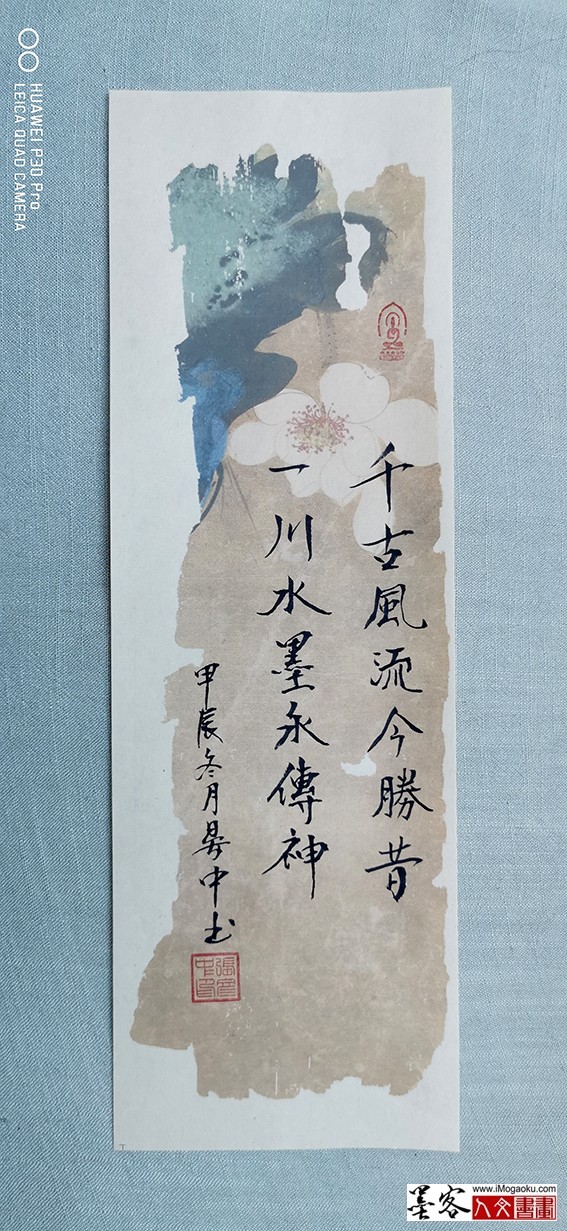 HUAWEI P30 Pro
LEICA QUAD CAMERA
千古風流今勝昔
一川水墨永傳神
甲辰冬月中书
www.iMogaoku.com
墨客人文書畫